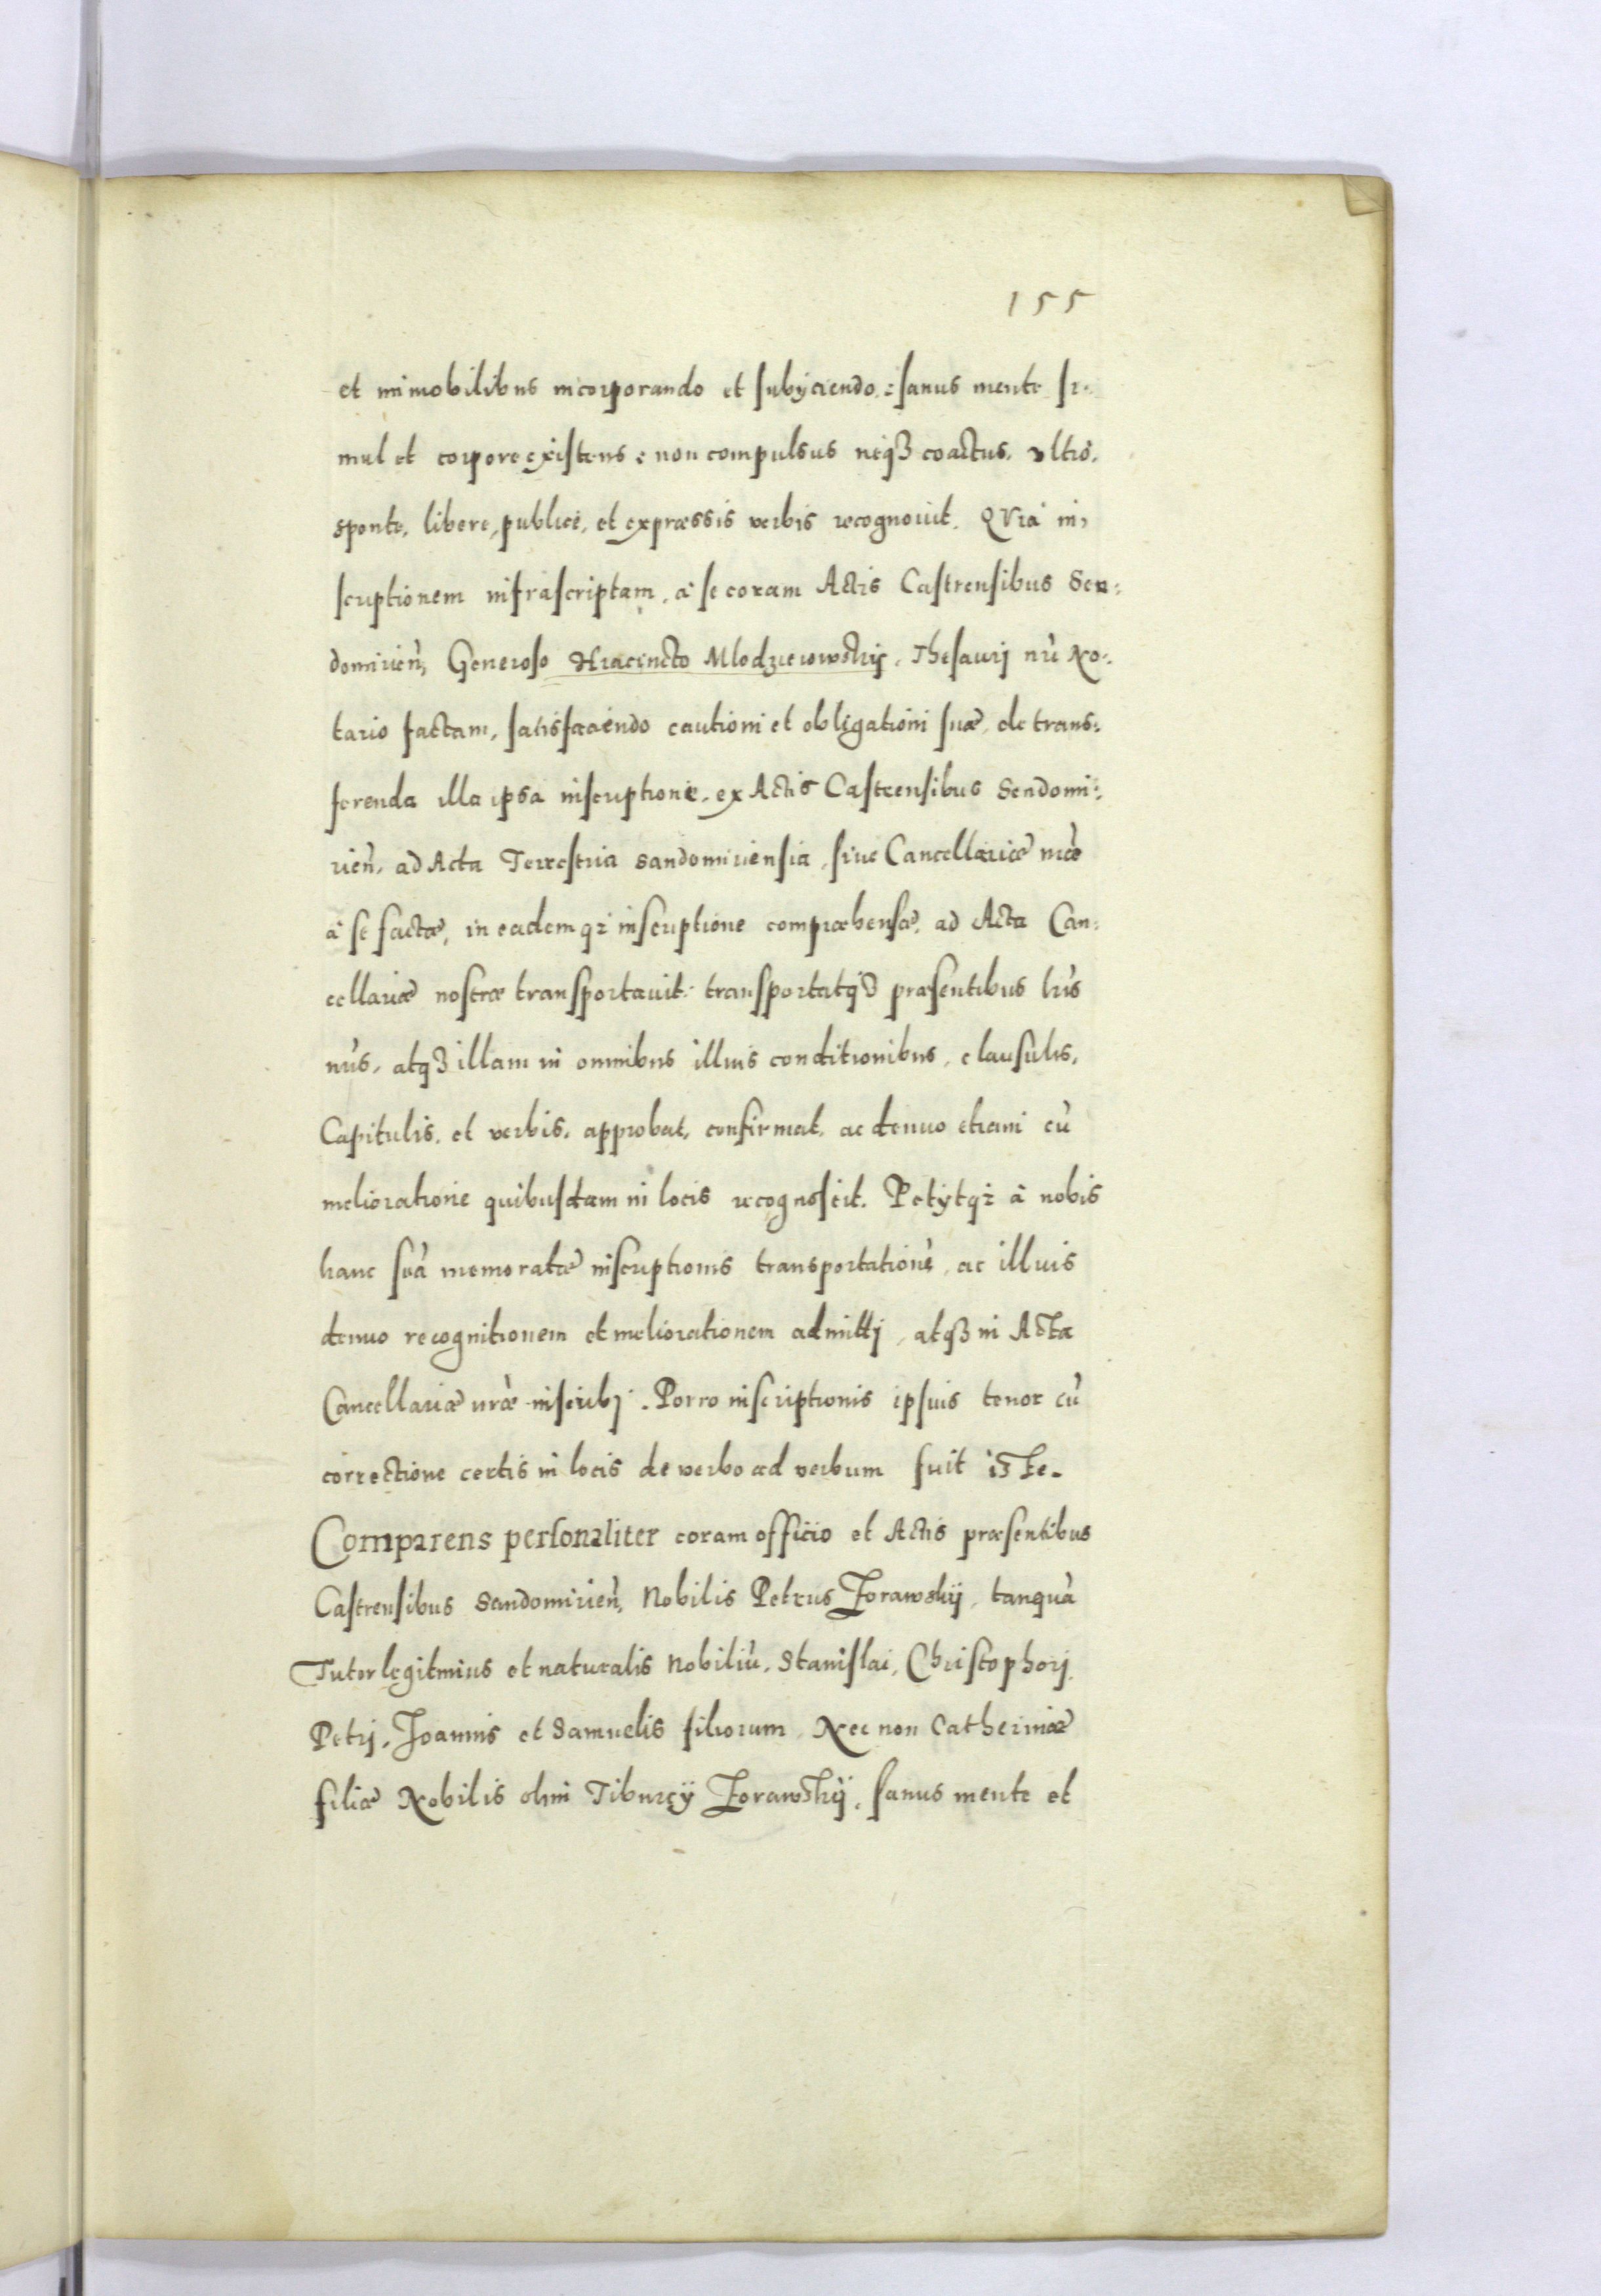 155
et immobilibus incorporando et subijciendo: sanus mente si-
mul et corpore existens: non compulsus neqȝ coactus, vltrò,
sponte, libere, publicè, et expræssis verbis recognovit. QVià in,
scriptionem infrascriptam, à se coram Actis Castrensibus Sen:
domirieñ, Generoso Hiacincto Mlodzieiowskij, Thesaurj nrĩ No:
tario factam, satisfaciendo cautioni et obligationi suæ, de trans:
ferenda illa ipsa inscriptione, ex Actis Castrensibus Sendomi:
rieñ, ad Acta Terrestria Sandomiriensia, sive Cancellariæ nræ
à se factæ, in eademqȝ inscriptione compræhensæ, ad Acta Can:
cellariæ nostræ transportavit: transportatqȝ præsentibus lrĩs
nrĩs, atqȝ illam in omnibus illius conditionibus, clausulis,
Capitulis, et verbis, approbat, confirmat, ac denuo etiam cũ
melioratione quibusdam in locis recognoscit. Petijtqȝ à nobis
hanc suã memoratæ inscriptionis transportationẽ, ac illius
denuo recognitionem et meliorationem admittj, atqȝ in Acta
Cancellariæ nræ inscribj. Porro inscriptionis ipsius tenor cũ
correctione certis in locis de verbo ad verbum fuit iste.
Comparens personaliter coram officio et Actis præsentibus
Castrensibus Sandomirieñ, Nobilis Petrus Zorawskij, tanquã
Tutor legitimus et naturalis Nobiliũ, Stanislai, Christophorj,
Petrj, Joannis et Samuelis filiorum, Nec non Catherinæ
filiæ Nobilis olim Tiburcij Zorawskij, sanus mente et